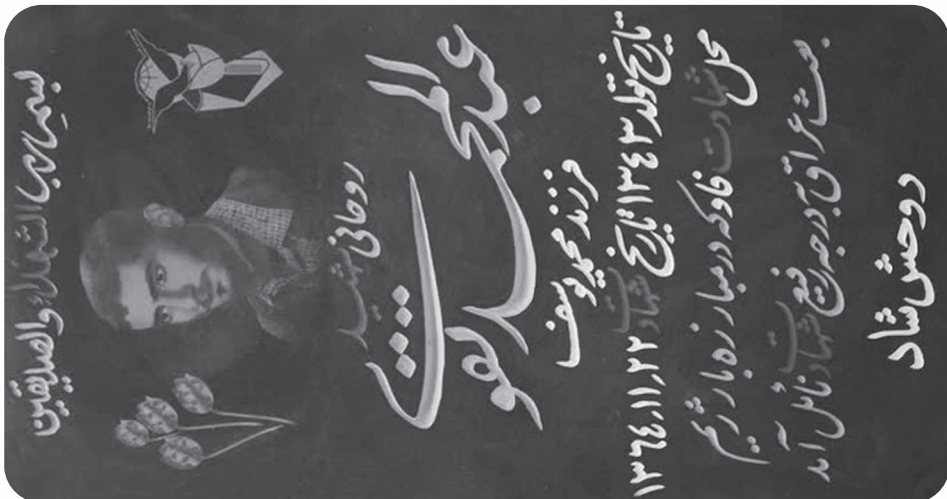 بسم رب الشهداء والصدیقین
روحانی شهید
فرزند محمد یوسف
تاریخ تولد ۱۳٤۳ تاریخ شهادت ۲۲٫۱۱٫۱۳٦٤
محل شهادت فاو که در مبارزه با رژیم
بعث عراق به درجه رفیع شهادت نائل آمد
روحش شاد